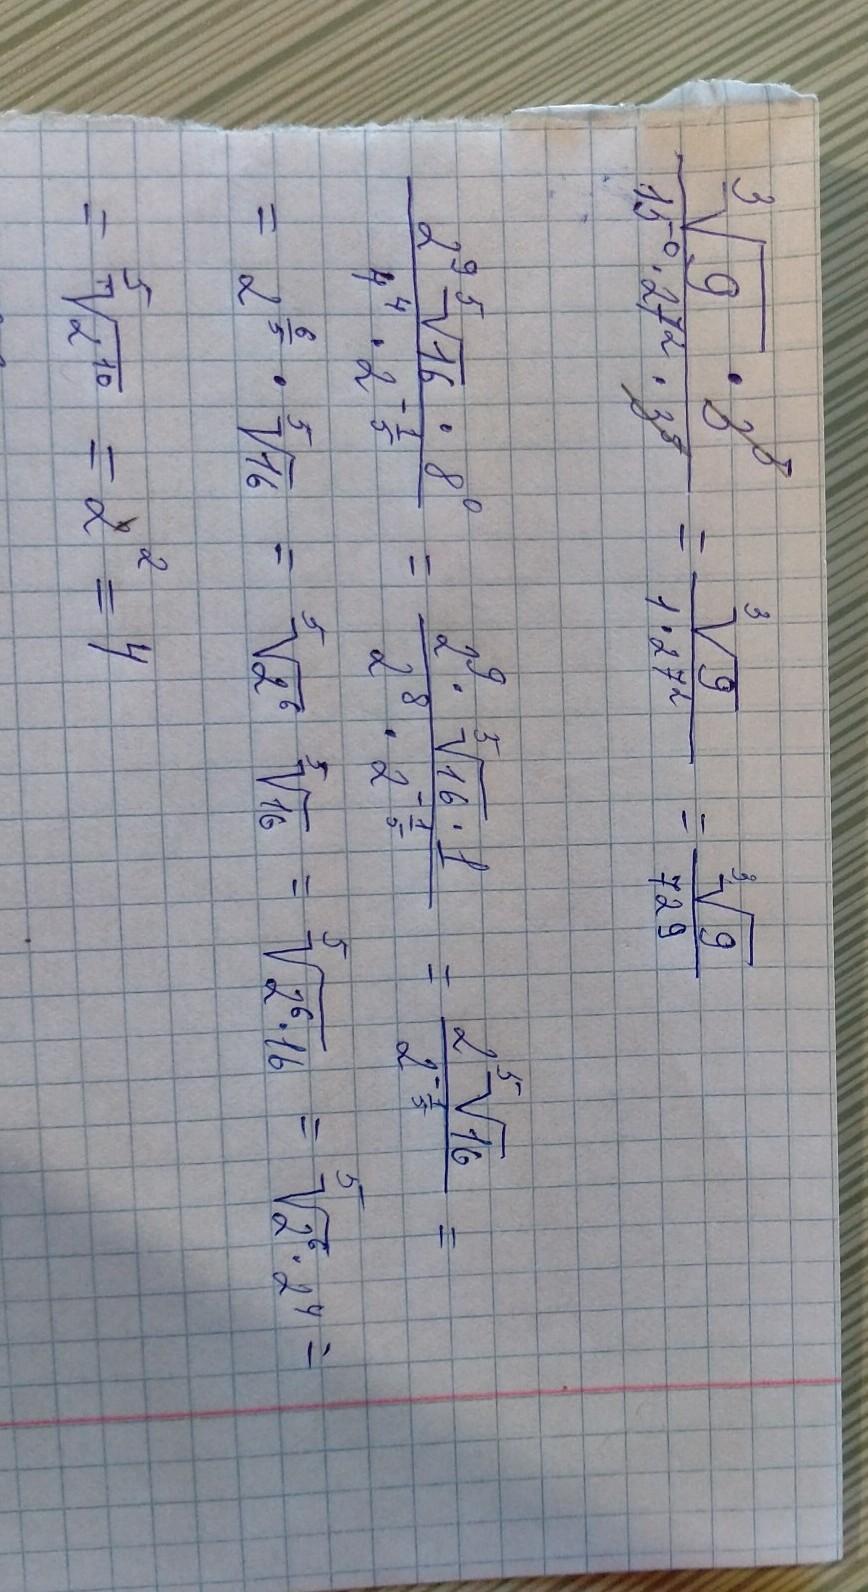 ∛9 · 3⁵ / 15⁻⁰ · 27² · 3⁵ = ∛9 / 1 · 27² = ∛9 / 729
2⁹ ⁵√16 · 8⁰ / 4⁴ · 2^(-1/5) = 2⁹ · ⁵√16 · 1 / 2⁸ · 2^(-1/5) = 2 ⁵√16 / 2^(-1/5) =
= 2^(6/5) · ⁵√16 = ⁵√2⁶ ⁵√16 = ⁵√(2⁶ · 16) = ⁵√(2⁶ · 2⁴) =
= ⁵√2¹⁰ = 2² = 4